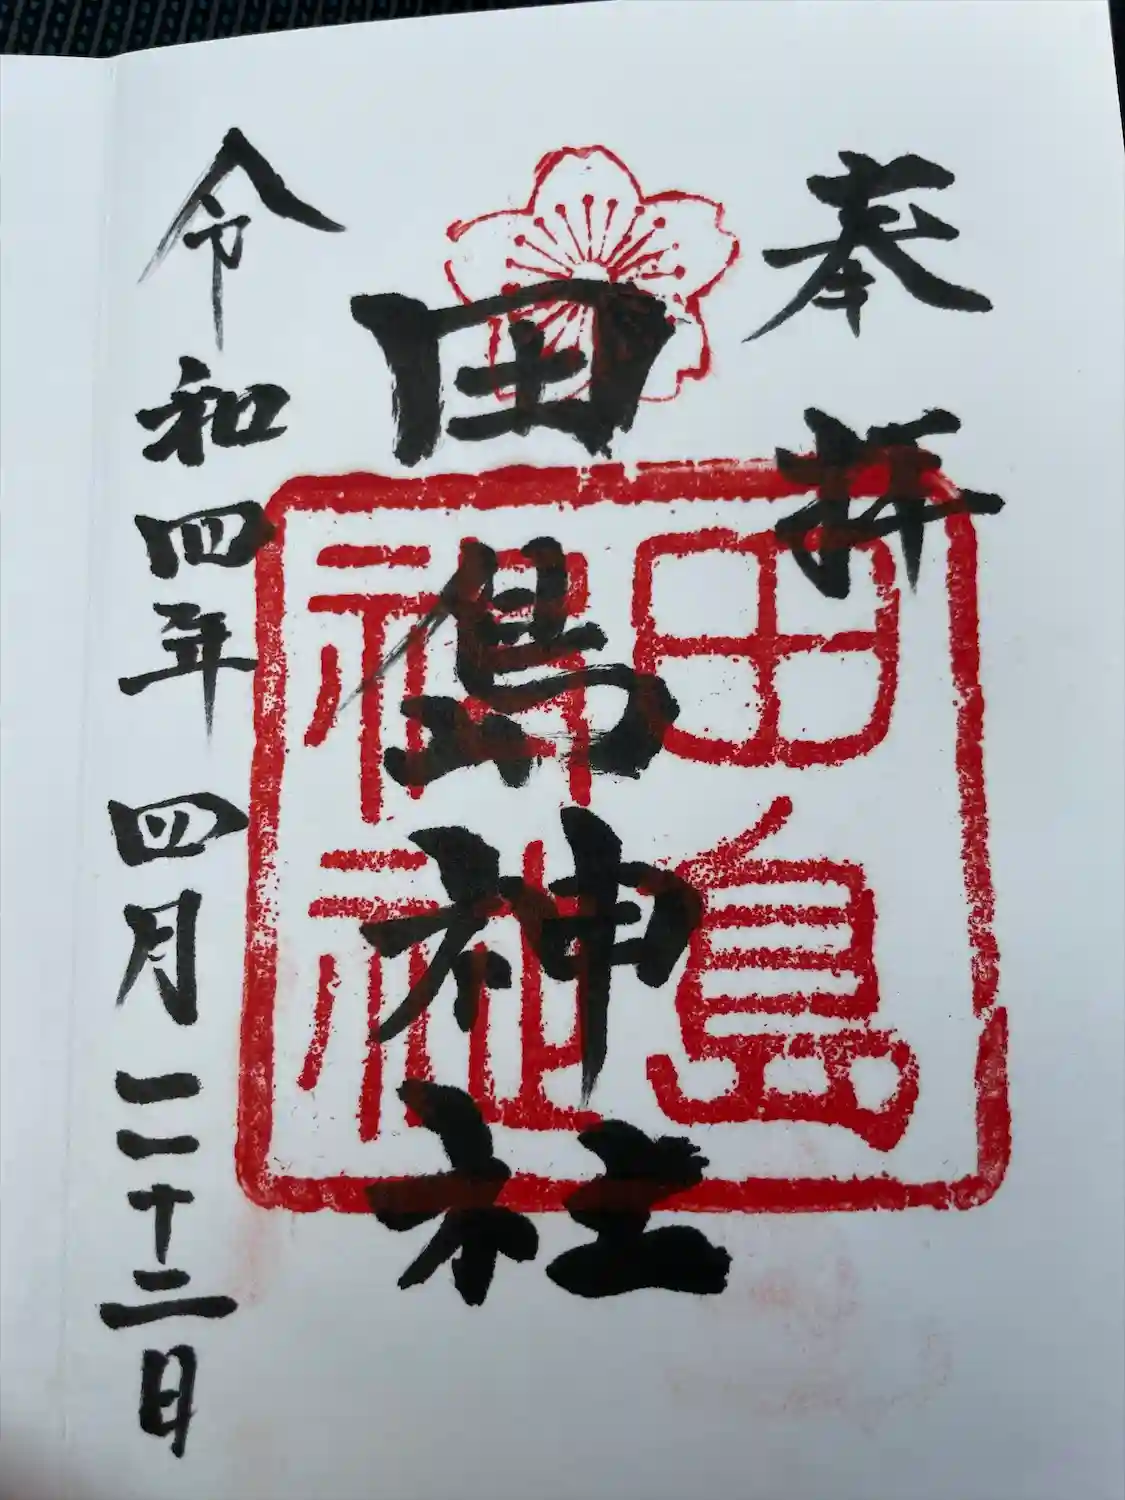 奉拝
田嶋神社
田島神社
令和四年四月二十二日